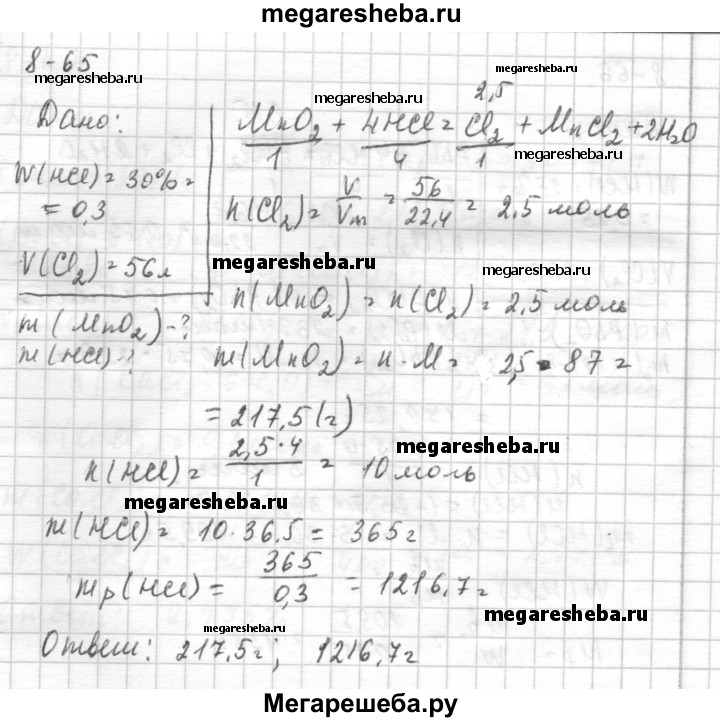 megaresheba.ru
8-65
megaresheba.ru
Дано:
W(HCl) = 30% =
= 0,3
V(Cl₂) = 56 л
m(MnO₂) - ?
m(HCl) - ?
megaresheba.ru
megaresheba.ru
2,5
MnO₂ + 4HCl = Cl₂ + MnCl₂ + 2H₂O
1 4 1
megaresheba.ru
n(Cl₂) = V/Vm = 56/22,4 = 2,5 моль
megaresheba.ru
megaresheba.ru
n(MnO₂) = n(Cl₂) = 2,5 моль
megaresheba.ru
m(MnO₂) = n · M = 2,5 · 87 =
= 217,5 (г)
megaresheba.ru
n(HCl) = 2,5·4/1 = 10 моль
megaresheba.ru
m(HCl) = 10·36,5 = 365 г
mр(HCl) = 365/0,3 = 1216,7 г
megaresheba.ru
megaresheba.ru
Ответ: 217,5 г; 1216,7 г
Мегарешеба.ру